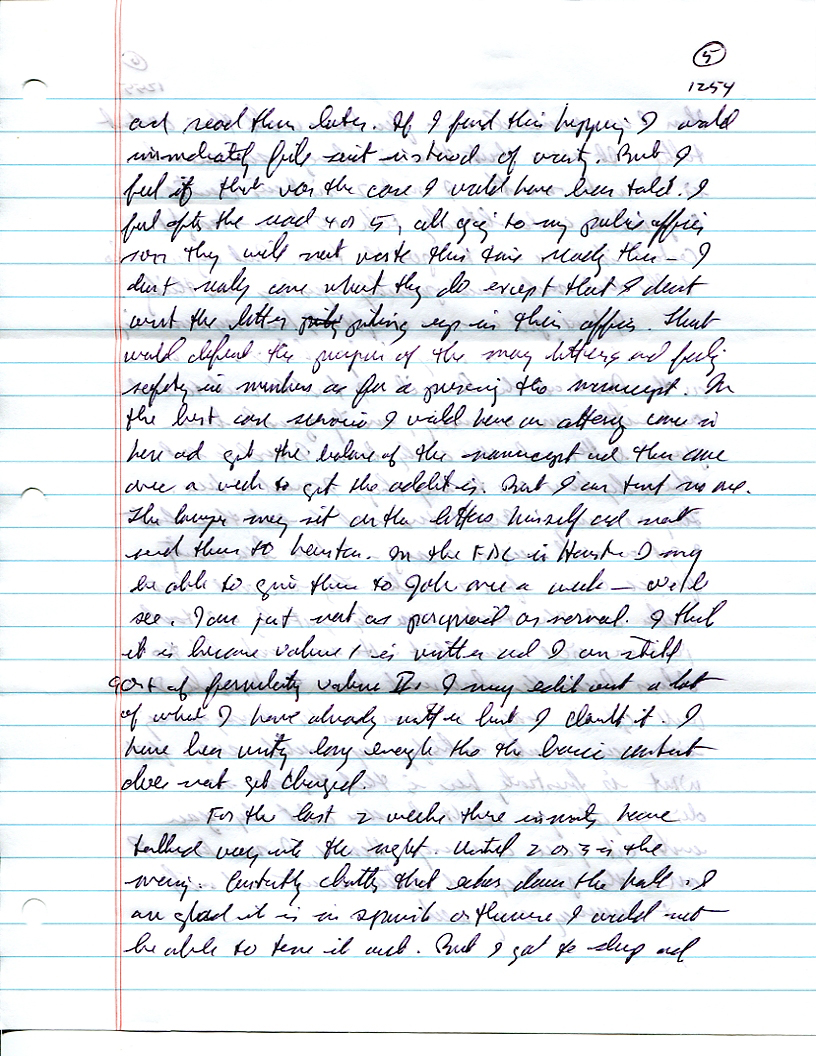 5
1254
and read them later. If I find this happening I would
immediately file suit instead of writing. But I
feel if that was the case I would have been told. I
feel after the read 4 or 5, all going to my public affairs
son they will not waste this time reading them – I
don't really care what they do except that I don't
want the letters piling up in their office. That
would defeat the purpose of the many letters and feeling
safety in numbers as far as pursuing the manuscript. In
the best case scenario I would have an attorney come in
here and get the balance of the manuscript and then come
over a week to get the additions. But I can trust no one.
The lawyer may sit on the letters himself and not
send them to Houston. In the FDC in Houston I may
be able to give them to Gale once a week – we'll
see. I am just not as paranoid as normal. I think
it is because volume 1 is written and I am still
sort of formulating volume II. I may edit out a lot
of what I have already written but I doubt it. I
have been writing long enough tho the basic content
does not get changed.
For the last 2 weeks these inmates have
talked way into the night. Until 2 or 3 in the
morning. Constantly chatting that echos down the hall. I
am glad it is in spanish otherwise I would not
be able to tune it out. But I got to sleep and